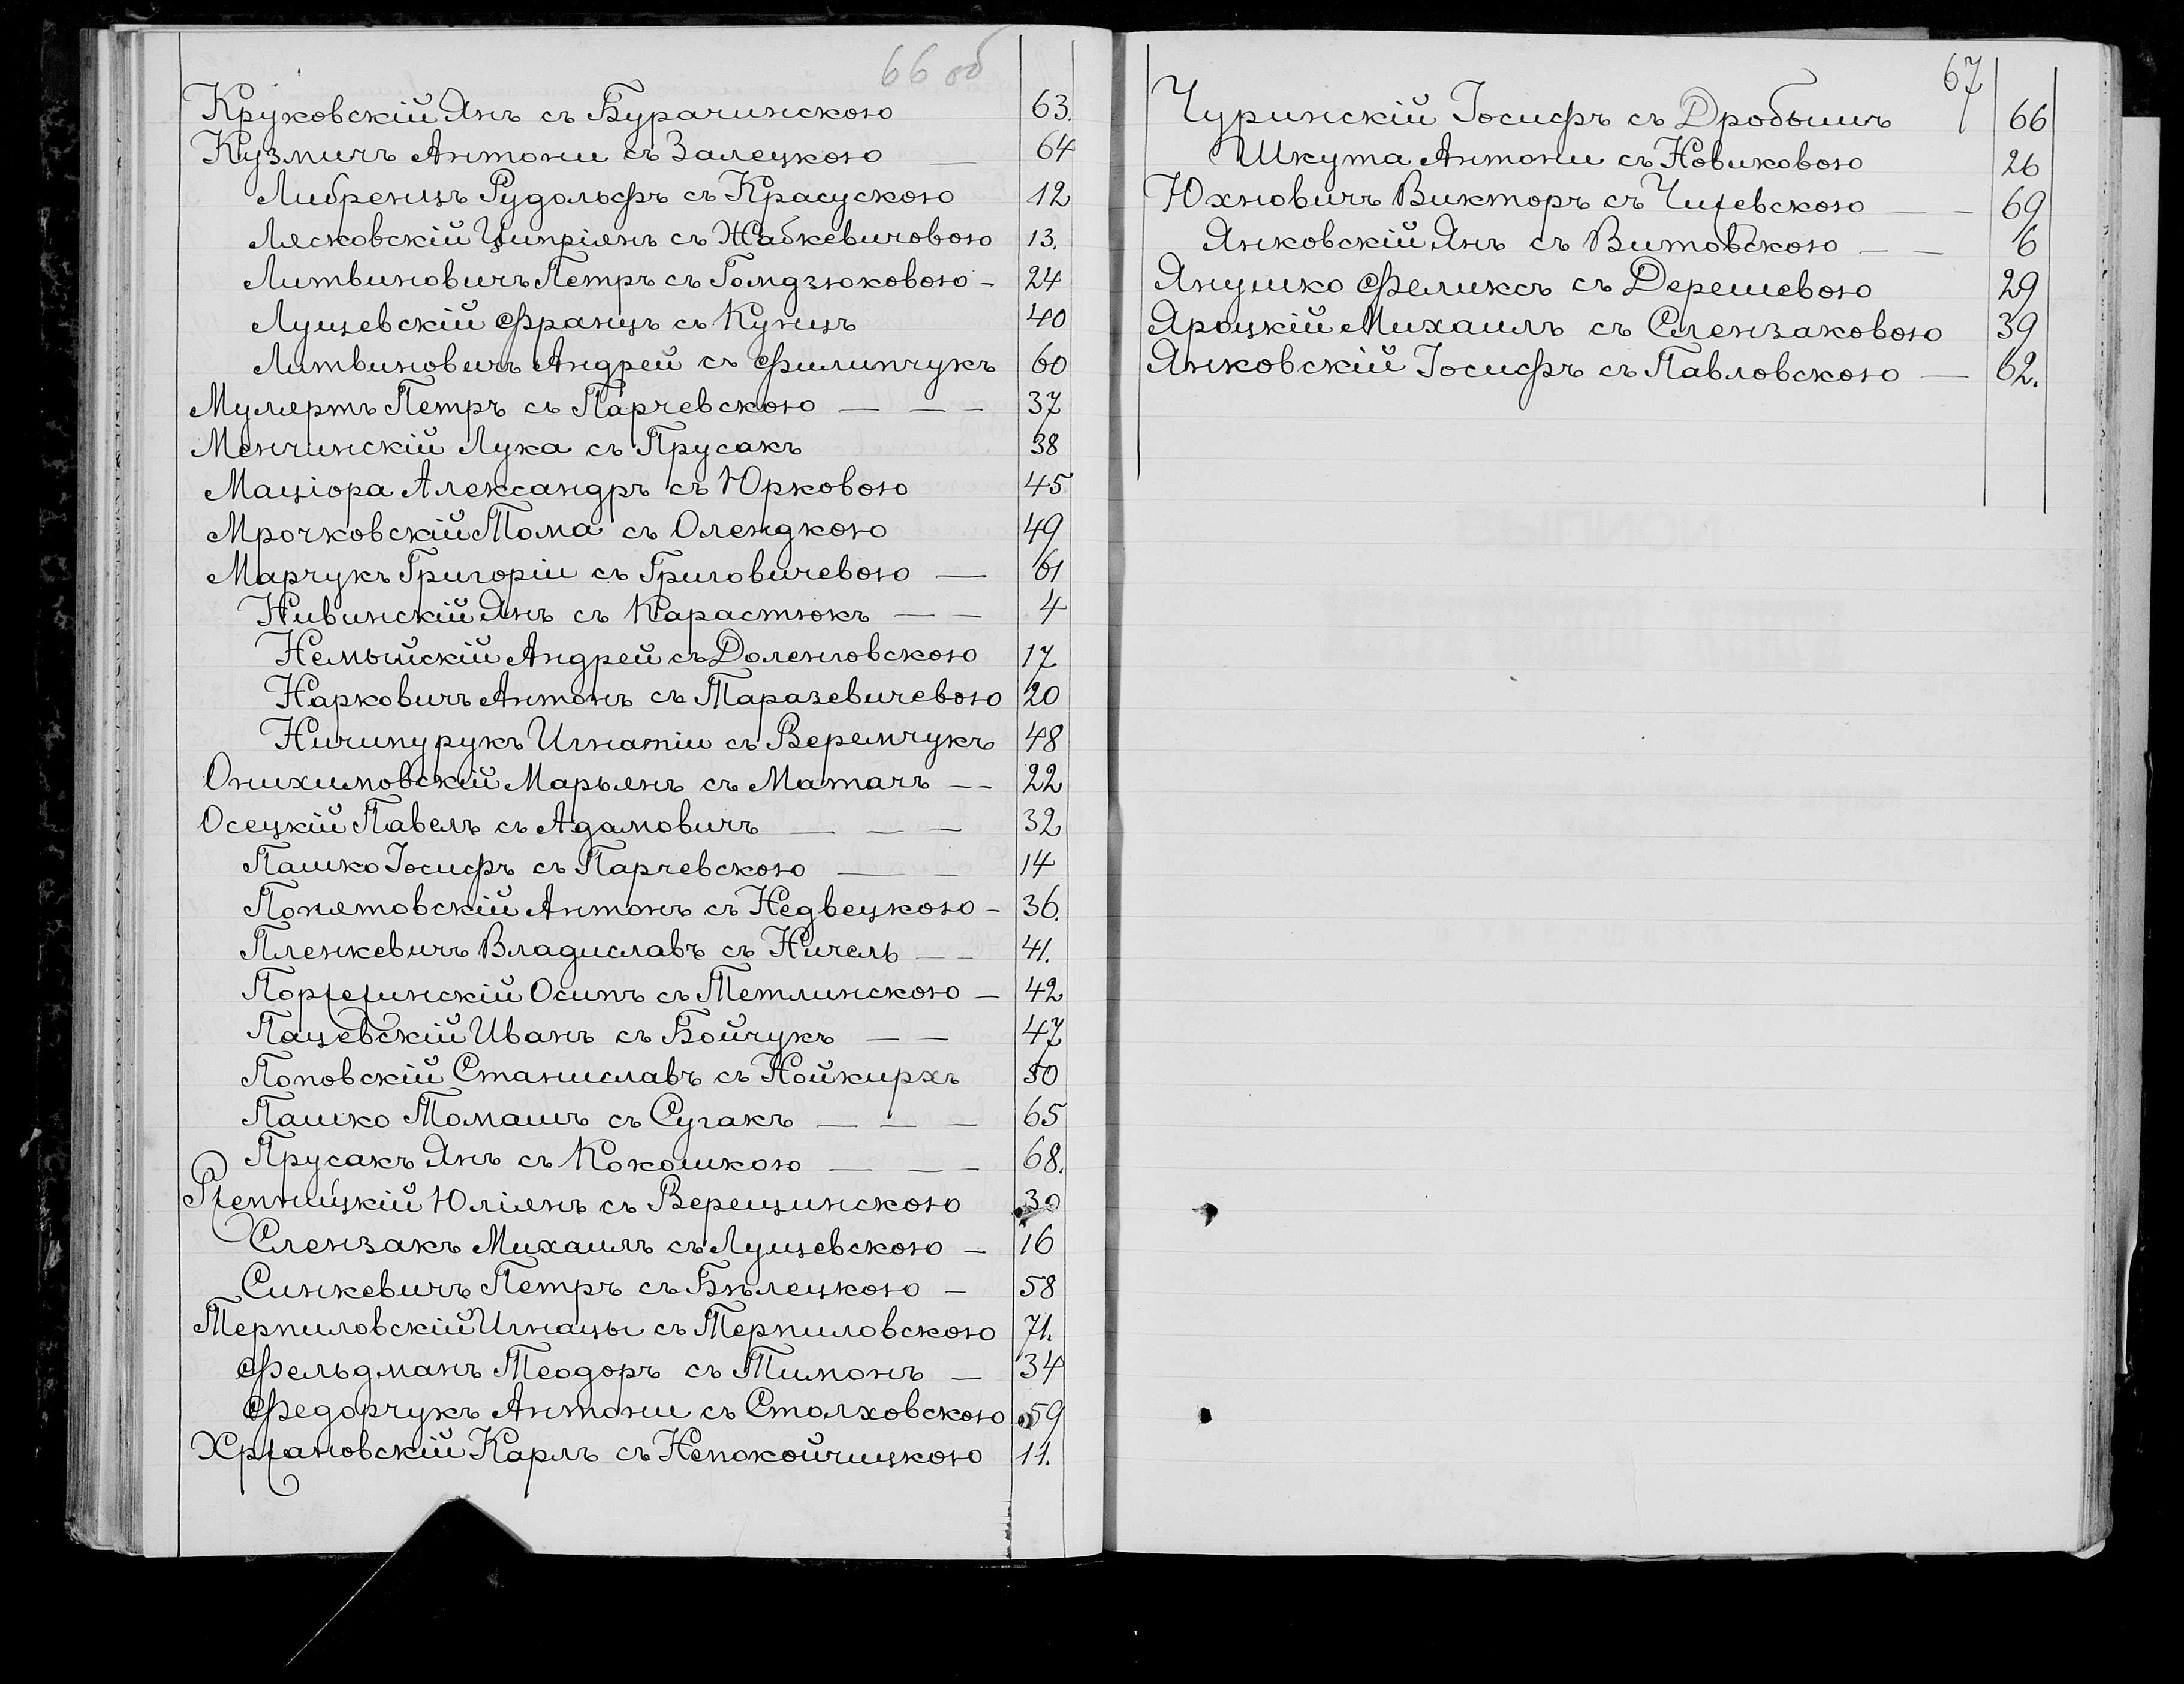 66 об
Круковскій Янъ съ Бурачинскою 63.
Кузмичъ Антони съ Залецкою — 64
Либренцъ Рудольфъ съ Красускою 12
Лясковскій Ципріянъ съ Жабкевичовою 13.
Литвиновичъ Петръ съ Гомдзюковою - 24
Лущевскій Францъ съ Кунцъ 40
Литвиновичъ Андрей съ Филипчукъ 60
Мулярть Петръ съ Парчевскою — — — 37
Менчинскій Лука съ Прусакъ 38
Маціора Александръ съ Юрковою 45
Мрочковскій Тома съ Олендкою 49
Марчукъ Григоріи съ Григовичевою — 61
Нивинскій Янъ съ Карастюкъ — — 4
Немыйскій Андрей съ Доленговскою 17
Нарковичъ Антонъ съ Таразевичевою 20
Ничипурукъ Игнатіи съ Веремчукъ 48
Онихимовскій Марьянъ съ Матачъ - - 22
Осецкій Павелъ съ Адамовичъ — — — 32
Пашко Іосифъ съ Парчевскою — — 14
Понятовскій Антонъ съ Недвецкою - 36.
Пленкевичъ Владиславъ съ Ничель — — 41.
Поржезинскій Осипъ съ Тетлинскою — 42
Пацевскій Иванъ съ Бойчукъ — — 47
Поповскій Станиславъ съ Нойкирхъ 50
Пашко Томашъ съ Сугакъ — — — 65
Прусакъ Янъ съ Кокошкою — — — 68.
Ржепницкій Юліянъ съ Верещинскою 30
Слензакъ Михаилъ съ Лущевскою — 16
Синкевичъ Петръ съ Бѣлецкою — 58
Терпиловскій Игнацы съ Терпиловскою 71.
Фельдманъ Теодоръ съ Тимонъ — 34
Федорчукъ Антони съ Столховскою 59
Хржановскій Карлъ съ Непокойчицкою 11.
67
Чуринскій Іосифъ съ Дробышъ 66
Шкута Антони съ Новиковою 26
Юхновичъ Викторъ съ Чижевскою — — 69
Янковскій Янъ съ Витовскою — — 6
Янушко Феликсъ съ Дерешевою 29
Яроцкій Михаилъ съ Слензаковою 39
Янковскій Іосифъ съ Павловскою — 62.